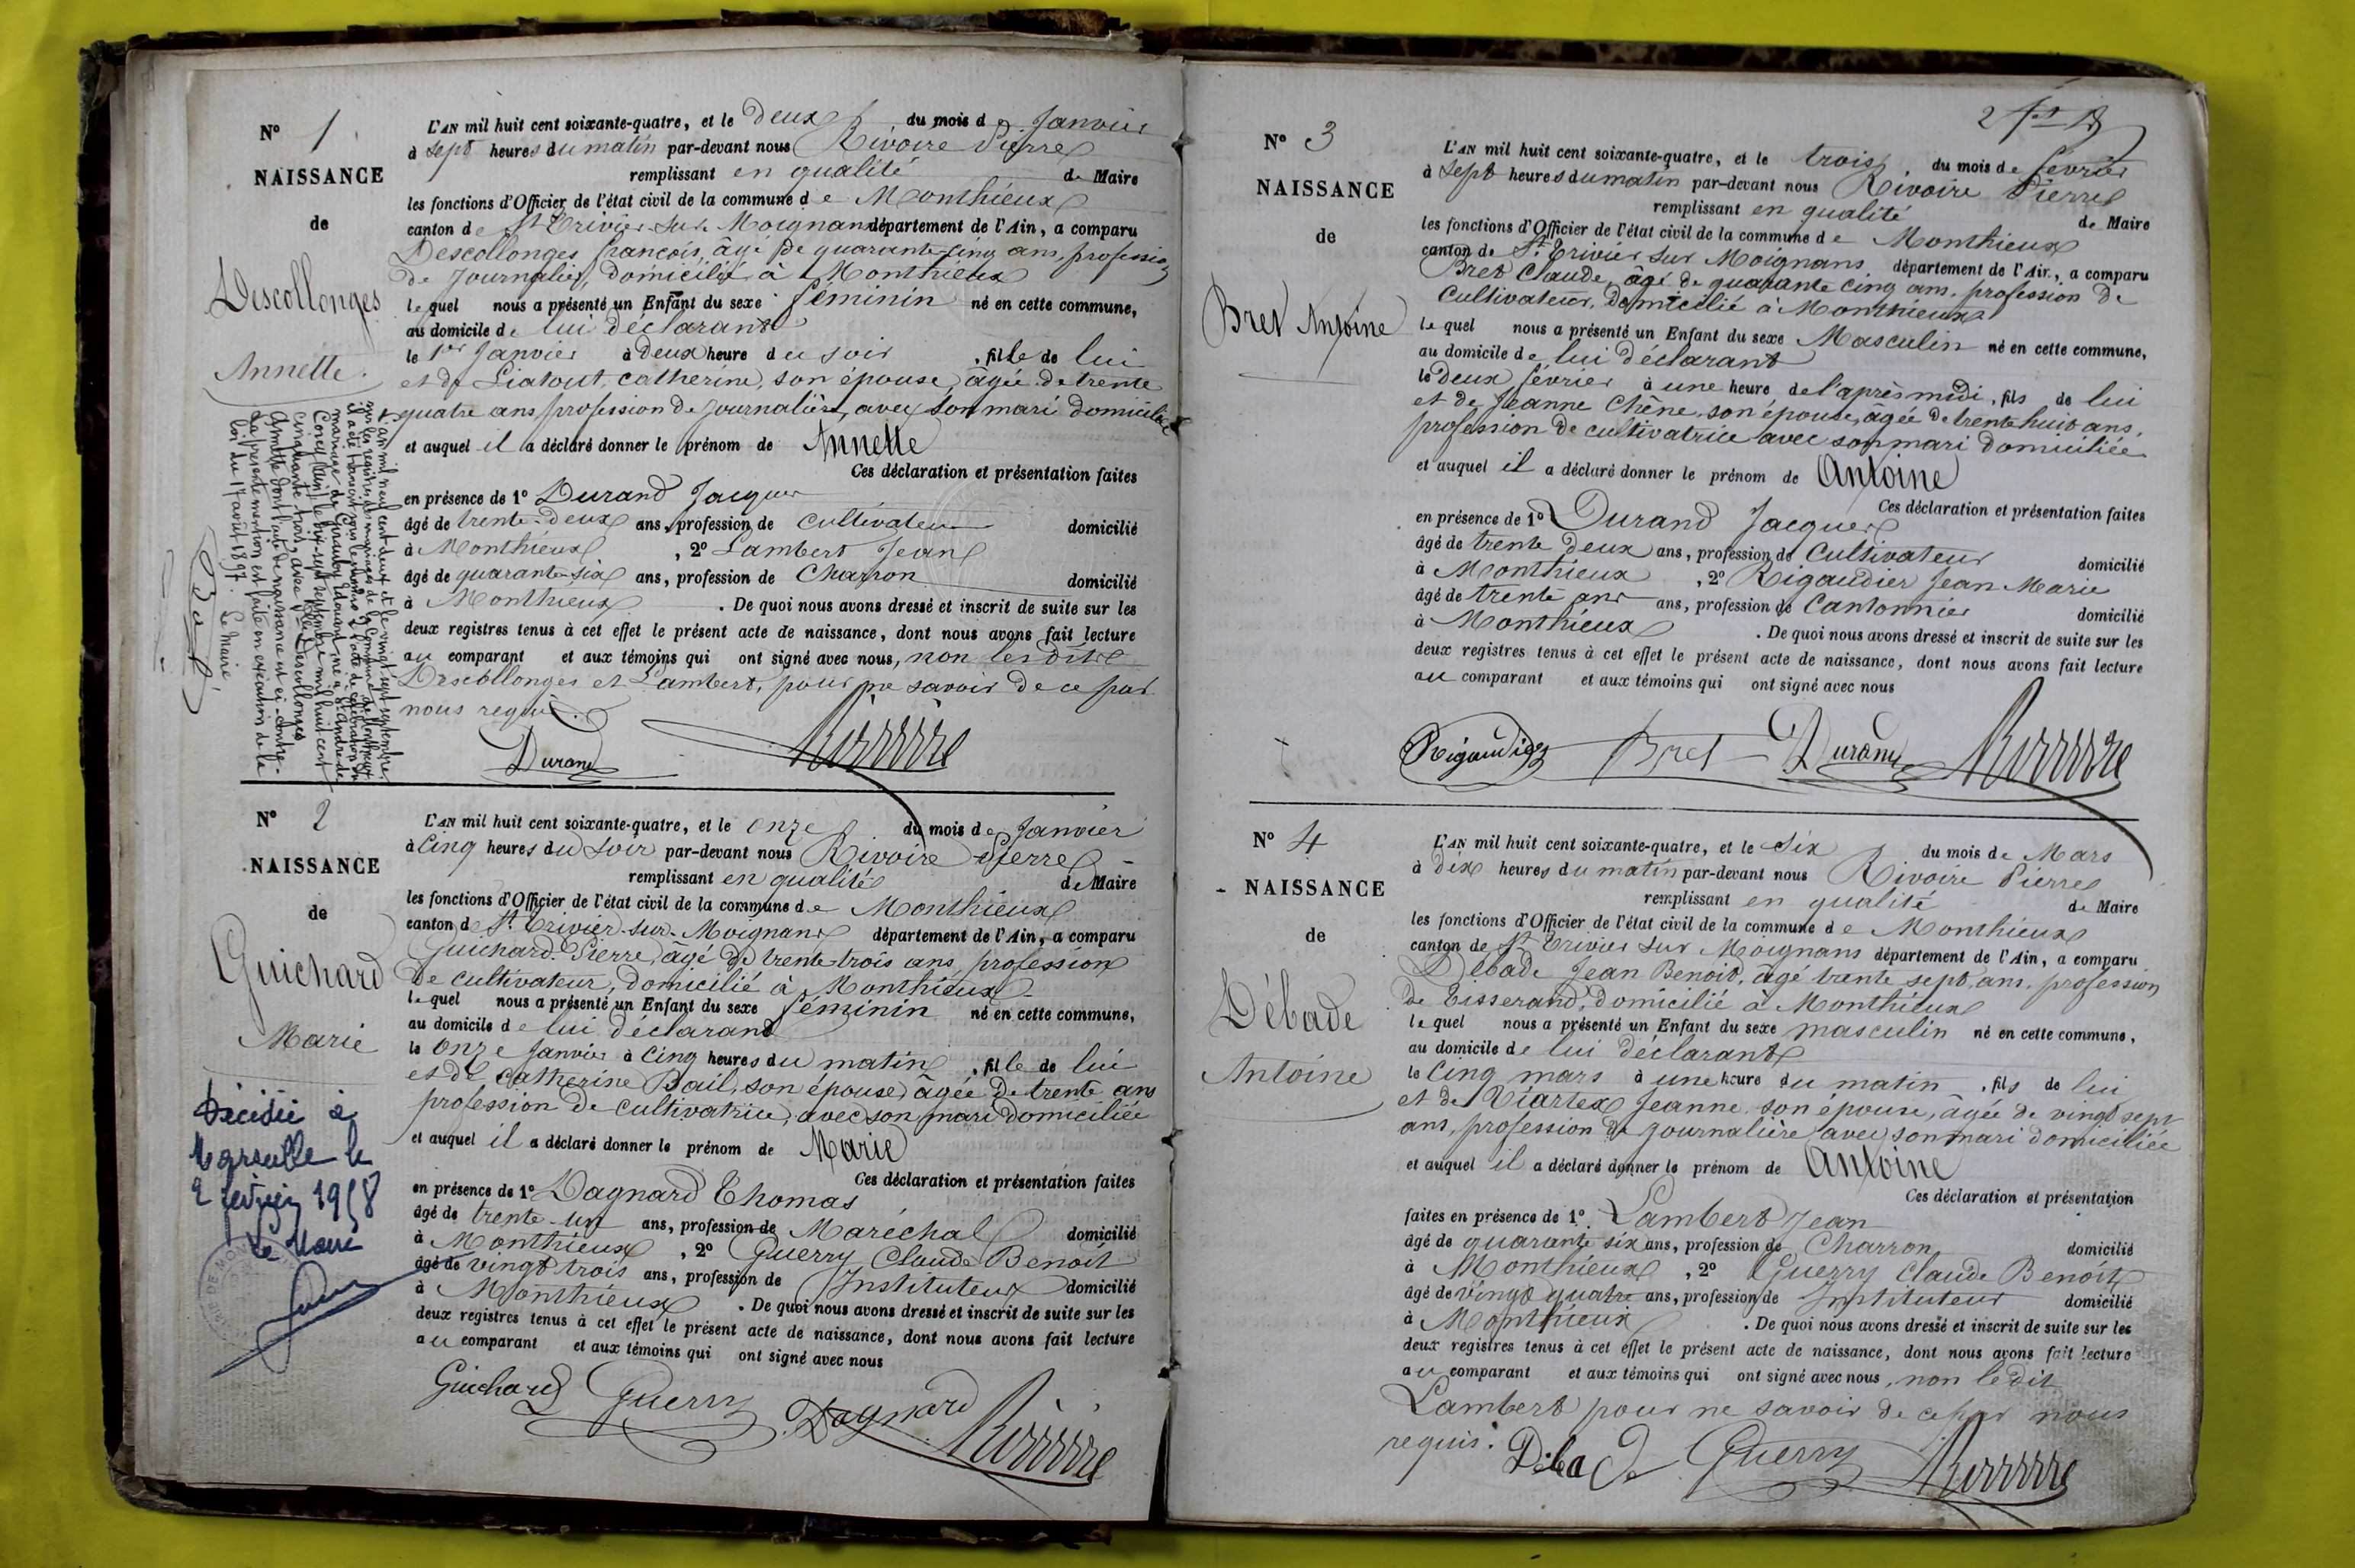 N° 1
NAISSANCE
de
Descollonges
Annette.
L'AN mil huit cent soixante-quatre, et le deux du mois de Janvier
à sept heures du matin par-devant nous Rivoire Pierre
remplissant en qualité de Maire
les fonctions d'Officier de l'état civil de la commune de Monthieux
canton de St Trivier sur Moignans département de l'Ain, a comparu
Descollonges françois, âgé de quarante cinq ans, profession
de Journalier, domicilié à Monthieux
lequel nous a présenté un Enfant du sexe féminin né en cette commune,
au domicile de lui déclarant
le 1er Janvier à deux heure du soir , fille de lui
et de Liatout, catherine, son épouse, âgée de trente
quatre ans, profession de journalière, avec son mari domiciliée
et auquel il a déclaré donner le prénom de Annette
Ces déclaration et présentation faites
en présence de 1° Durand Jacques
âgé de trente-deux ans, profession de cultivateur domicilié
à Monthieux , 2° Lambert Jean
âgé de quarante six ans, profession de Charron domicilié
à Monthieux . De quoi nous avons dressé et inscrit de suite sur les
deux registres tenus à cet effet le présent acte de naissance, dont nous avons fait lecture
au comparant et aux témoins qui ont signé avec nous, non les dits
Descollonges et Lambert, pour ne savoir de ce par
nous requis.
Durand
L'an mil neuf cent deux et le vingt sept septembre,
mariage de
cinquante trois, avec Descollonges
Annette dont l'acte de naissance est ci-contre.
La présente mention est faite en exécution de la
loi du 17 août 1897. Le Maire,
N° 2
NAISSANCE
de
Guichard
Marie
Décédée à
Marseille le
2 février 1958
Le Maire
L'AN mil huit cent soixante-quatre, et le onze du mois de Janvier
à Cinq heures du soir par-devant nous Rivoire Pierre
remplissant en qualité de Maire
les fonctions d'Officier de l'état civil de la commune de Monthieux
canton de St Trivier-sur-Moignans département de l'Ain, a comparu
Guichard Pierre, âgé de trente trois ans, profession
de cultivateur, domicilié à Monthieux
lequel nous a présenté un Enfant du sexe féminin né en cette commune,
au domicile de lui déclarant
le Onze Janvier à Cinq heures du matin , fille de lui
et de Catherine Bail, son épouse, âgée de trente ans
profession de cultivatrice, avec son mari domiciliée
et auquel il a déclaré donner le prénom de Marie
Ces déclaration et présentation faites
en présence de 1° Dagnard Thomas
âgé de trente-un ans, profession de Maréchal domicilié
à Monthieux , 2° Guerry Claude Benoit
âgé de vingt trois ans, profession de Instituteur domicilié
à Monthieux . De quoi nous avons dressé et inscrit de suite sur les
deux registres tenus à cet effet le présent acte de naissance, dont nous avons fait lecture
au comparant et aux témoins qui ont signé avec nous
Guichard Guerry Dagnard Rivoire
N° 3
NAISSANCE
de
Bret Antoine
L'AN mil huit cent soixante-quatre, et le trois du mois de février
à sept heures du matin par-devant nous Rivoire Pierre
remplissant en qualité de Maire
les fonctions d'Officier de l'état civil de la commune de Monthieux
canton de St Trivier sur Moignans département de l'Ain, a comparu
Bret Claude, âgé de quarante cinq ans, profession de
Cultivateur, domicilié à Monthieux
lequel nous a présenté un Enfant du sexe Masculin né en cette commune,
au domicile de lui déclarant
le Deux février à une heure de l'après midi, fils de lui
et de Jeanne Chêne, son épouse, âgée de trente huit ans,
profession de cultivatrice avec son mari domiciliée
et auquel il a déclaré donner le prénom de Antoine
Ces déclaration et présentation faites
en présence de 1° Durand Jacques
âgé de trente deux ans, profession de Cultivateur domicilié
à Monthieux , 2° Rigaudier Jean Marie
âgé de trente ans ans, profession de Cantonnier domicilié
à Monthieux . De quoi nous avons dressé et inscrit de suite sur les
deux registres tenus à cet effet le présent acte de naissance, dont nous avons fait lecture
au comparant et aux témoins qui ont signé avec nous
Rigaudier Bret Durand Rivoire
N° 4
NAISSANCE
de
Débade
Antoine
L'AN mil huit cent soixante-quatre, et le six du mois de Mars
à dix heures du matin par-devant nous Rivoire Pierre
remplissant en qualité de Maire
les fonctions d'Officier de l'état civil de la commune de Monthieux
canton de St Trivier sur Moignans département de l'Ain, a comparu
Débade Jean Benoit, âgé trente sept, ans, profession
de Tisserand, domicilié à Monthieux
lequel nous a présenté un Enfant du sexe masculin né en cette commune,
au domicile de lui déclarant
le Cinq mars à une heure du matin , fils de lui
et de Jeanne, son épouse, âgée de vingt sept
ans, profession de journalière, avec son mari domiciliée
et auquel il a déclaré donner le prénom de Antoine
Ces déclaration et présentation
faites en présence de 1° Lambert Jean
âgé de quarante six ans, profession de Charron domicilié
à Monthieux , 2° Guerry Claude Benoit
âgé de vingt quatre ans, profession de Instituteur domicilié
à Monthieux . De quoi nous avons dressé et inscrit de suite sur les
deux registres tenus à cet effet le présent acte de naissance, dont nous avons fait lecture
au comparant et aux témoins qui ont signé avec nous, non le dit
Lambert pour ne savoir de ce par nous
requis. Débade Guerry Rivoire